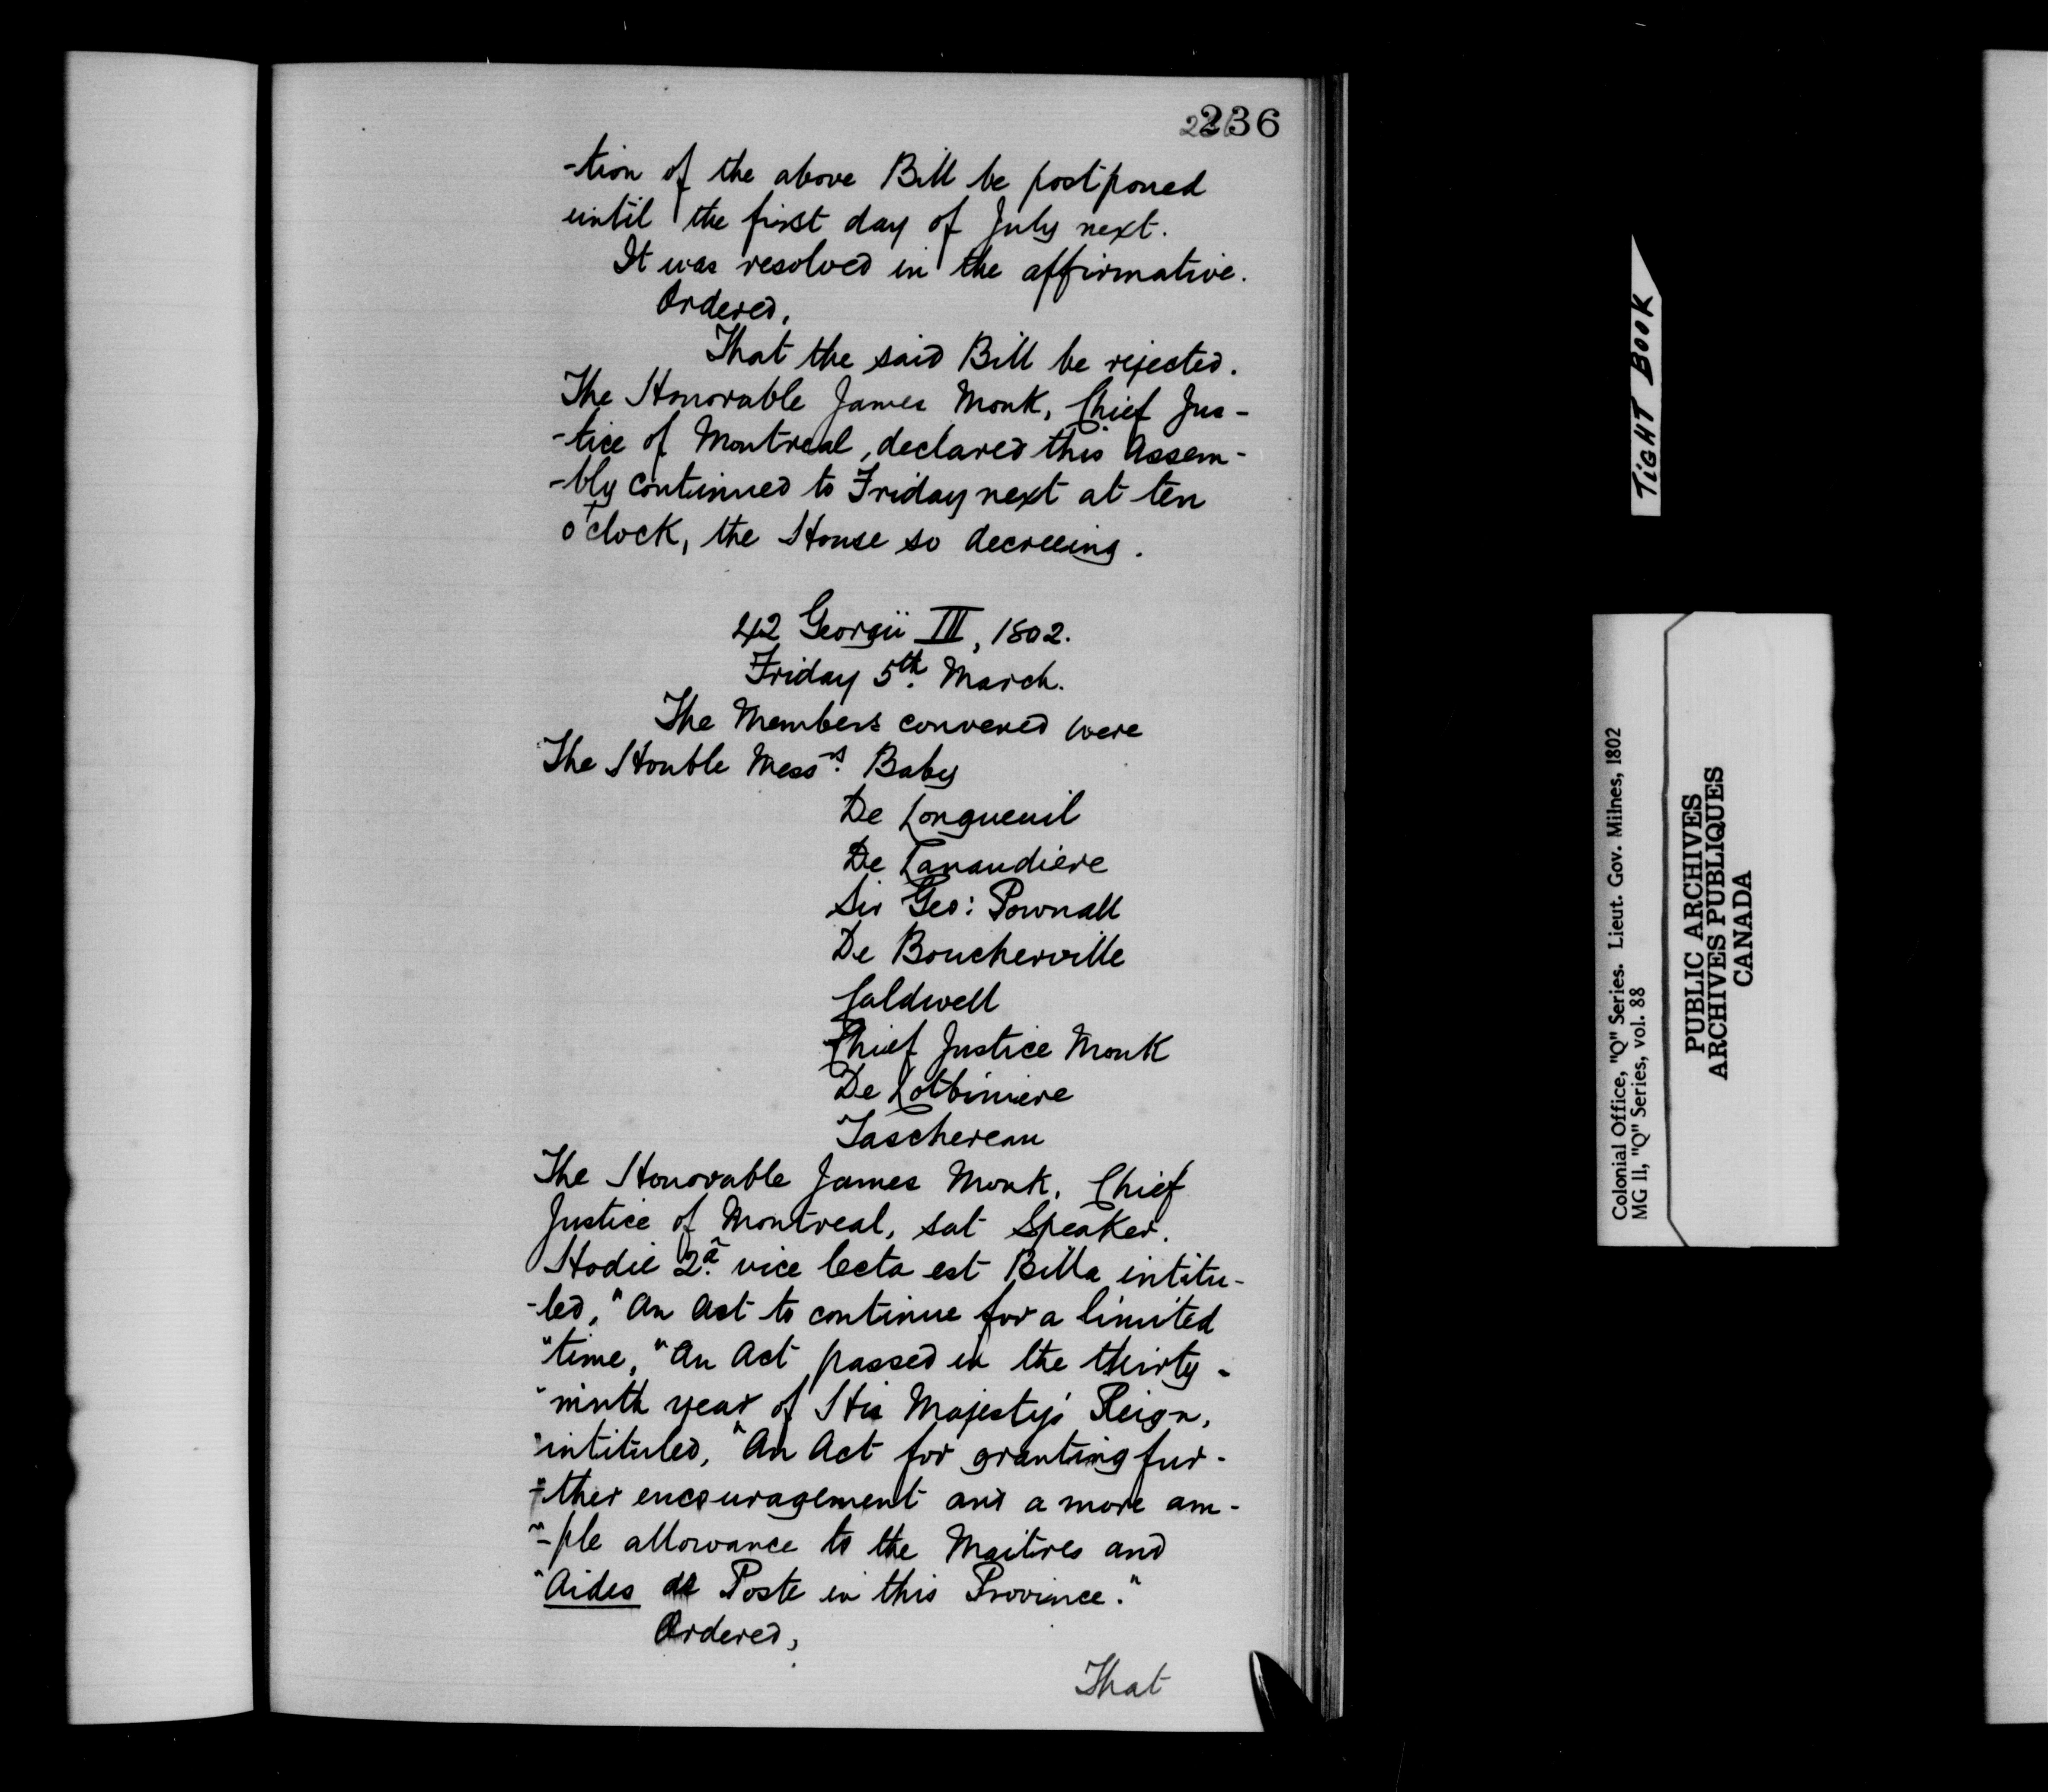 236
-tion of the above Bill be postponed
until the first day of July next.
It was resolved in the affirmative.
Ordered,
That the said Bill be rejected.
The Honorable James Monk, Chief Jus-
-tice of Montreal, declared this Assem-
-bly continued to Friday next at ten
o'clock, the House so decreeing.
42 Georgii III, 1802.
Friday 5th. March.
The Members convened were
The Honble Messrs. Baby
De Longueuil
De Lanaudiere
Sir Geo: Pownall
De Boucherville
Caldwell
Chief Justice Monk
De Lotbiniere
Taschereau
The Honorable James Monk, Chief
Justice of Montreal, sat Speaker.
Hodie 2a. vice lecta est Billa intitu-
-led, "An Act to continue for a limited
"time, "An Act passed in the thirty-
"ninth year of His Majesty's Reign,
"intituled, "An Act for granting fur-
"-ther encouragement and a more am-
"-ple allowance to the Maitres and
"Aides de Poste in this Province."
Ordered,
That
TIGHT BOOK
Colonial Office, "Q" Series. Lieut. Gov. Milnes, 1802
MG 11, "Q" Series, vol. 88
PUBLIC ARCHIVES
ARCHIVES PUBLIQUES
CANADA